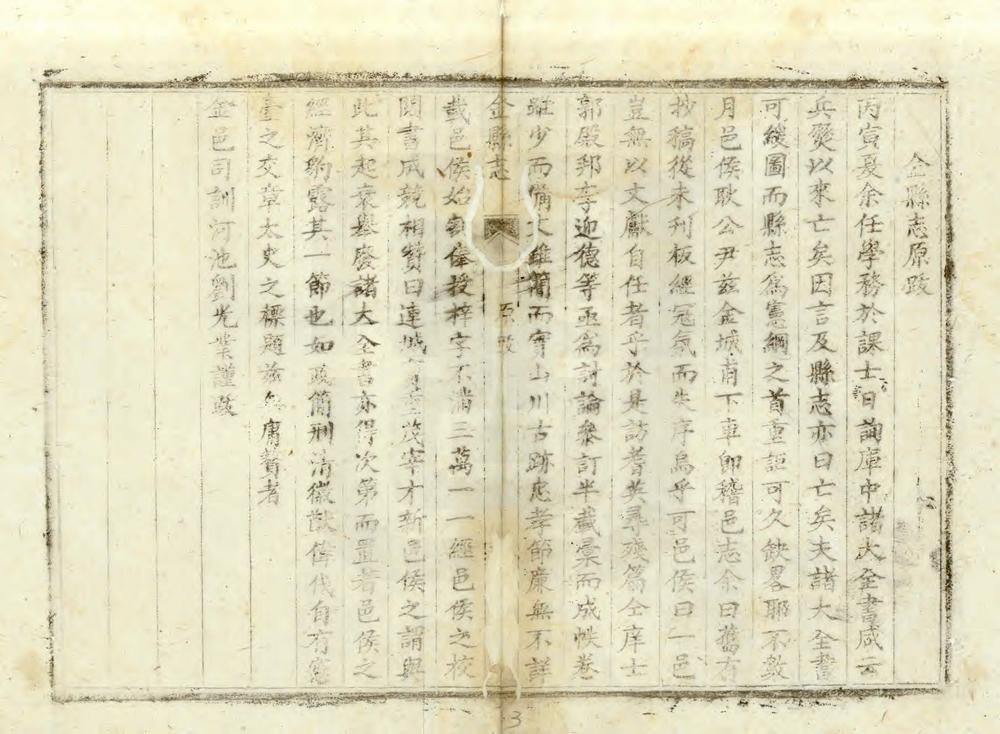 金縣志原跋
丙寅夏余任學務於課士日詢庫中諸大全書咸云
兵燹以來亡矣因言及縣志亦曰亡矣夫諸大全書
可緩圖而縣志爲憲綱之首重詎可久缺畧耶不數
月邑侯耿公尹茲金城甫下車即稽邑志余曰舊有
抄稿從未刊板經冠氛而失序烏乎可邑侯曰一邑
豈無以文獻自任者乎於是訪耆英尋殘篇仝庠士
郭殿邦李迎德等亟爲討論參訂半載彚而成帙卷
雖少而備文雖簡而實山川古跡忠孝節廉無不詳
金縣志 原跋
載邑侯始 僱授梓字不滿三萬一一經邑侯之校
閱書成競相贊曰連城 重茂宰才新邑侯之謂與
此其起衰舉廢諸大全書亦得次第而置者邑侯之
經濟豹露其一節也如政簡刑清徽猷偉伐自有憲
臺之交章太史之標題茲無庸贅者
金邑司訓河池劉光業謹跋
3